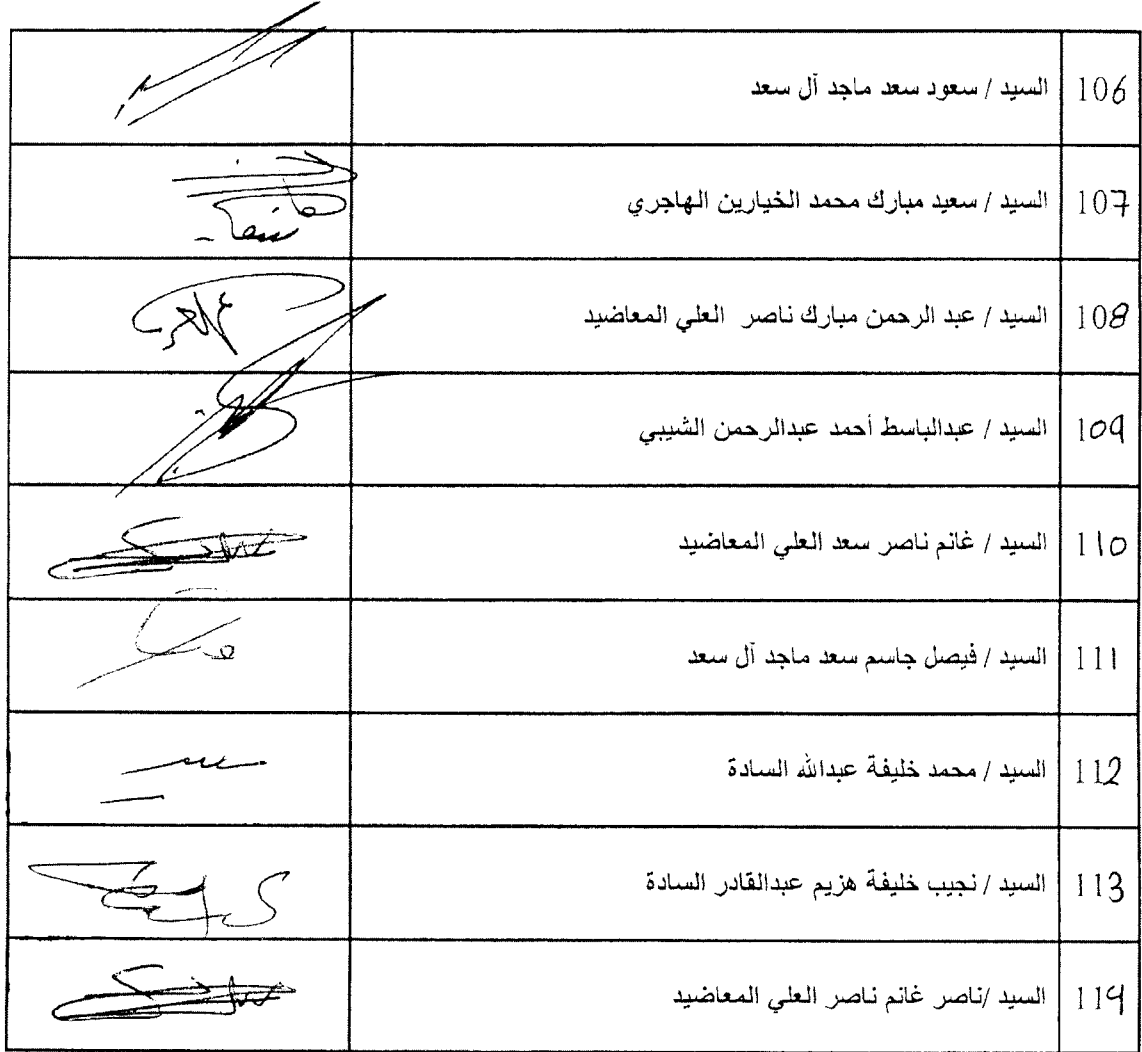 106 السيد / سعود سعد ماجد آل سعد
107 السيد / سعيد مبارك محمد الخيارين الهاجري
108 السيد / عبد الرحمن مبارك ناصر العلي المعاضيد
109 السيد / عبدالباسط أحمد عبدالرحمن الشيبي
110 السيد / غانم ناصر سعد العلي المعاضيد
111 السيد / فيصل جاسم سعد ماجد آل سعد
112 السيد / محمد خليفة عبدالله السادة
113 السيد / نجيب خليفة هزيم عبدالقادر السادة
114 السيد /ناصر غانم ناصر العلي المعاضيد